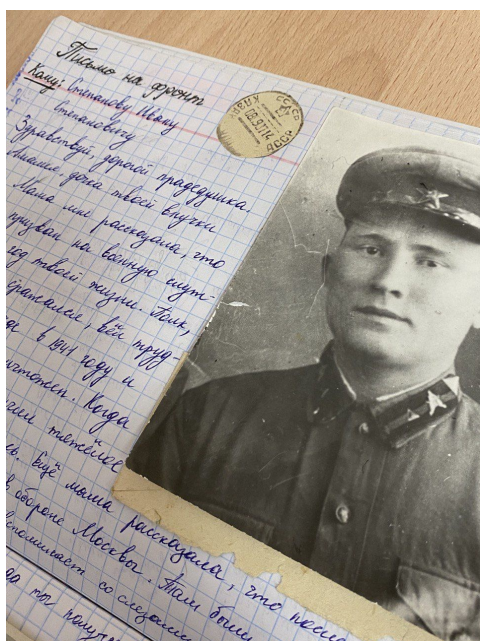 Письмо на фронт
Кому: Степанову Ивану
Степановичу
Здравствуй, дорогой прадедушка.
пишет дочка твоей внучки
Мама мне рассказала, что
призван на военную служ-
год твоей жизни. Полк,
сражался, вёл труд-
в 1941 году и
Когда
тяжёлое
Ещё мама рассказала, что после
в обороне Москвы. Там были
вспоминает со слезами
ты получ